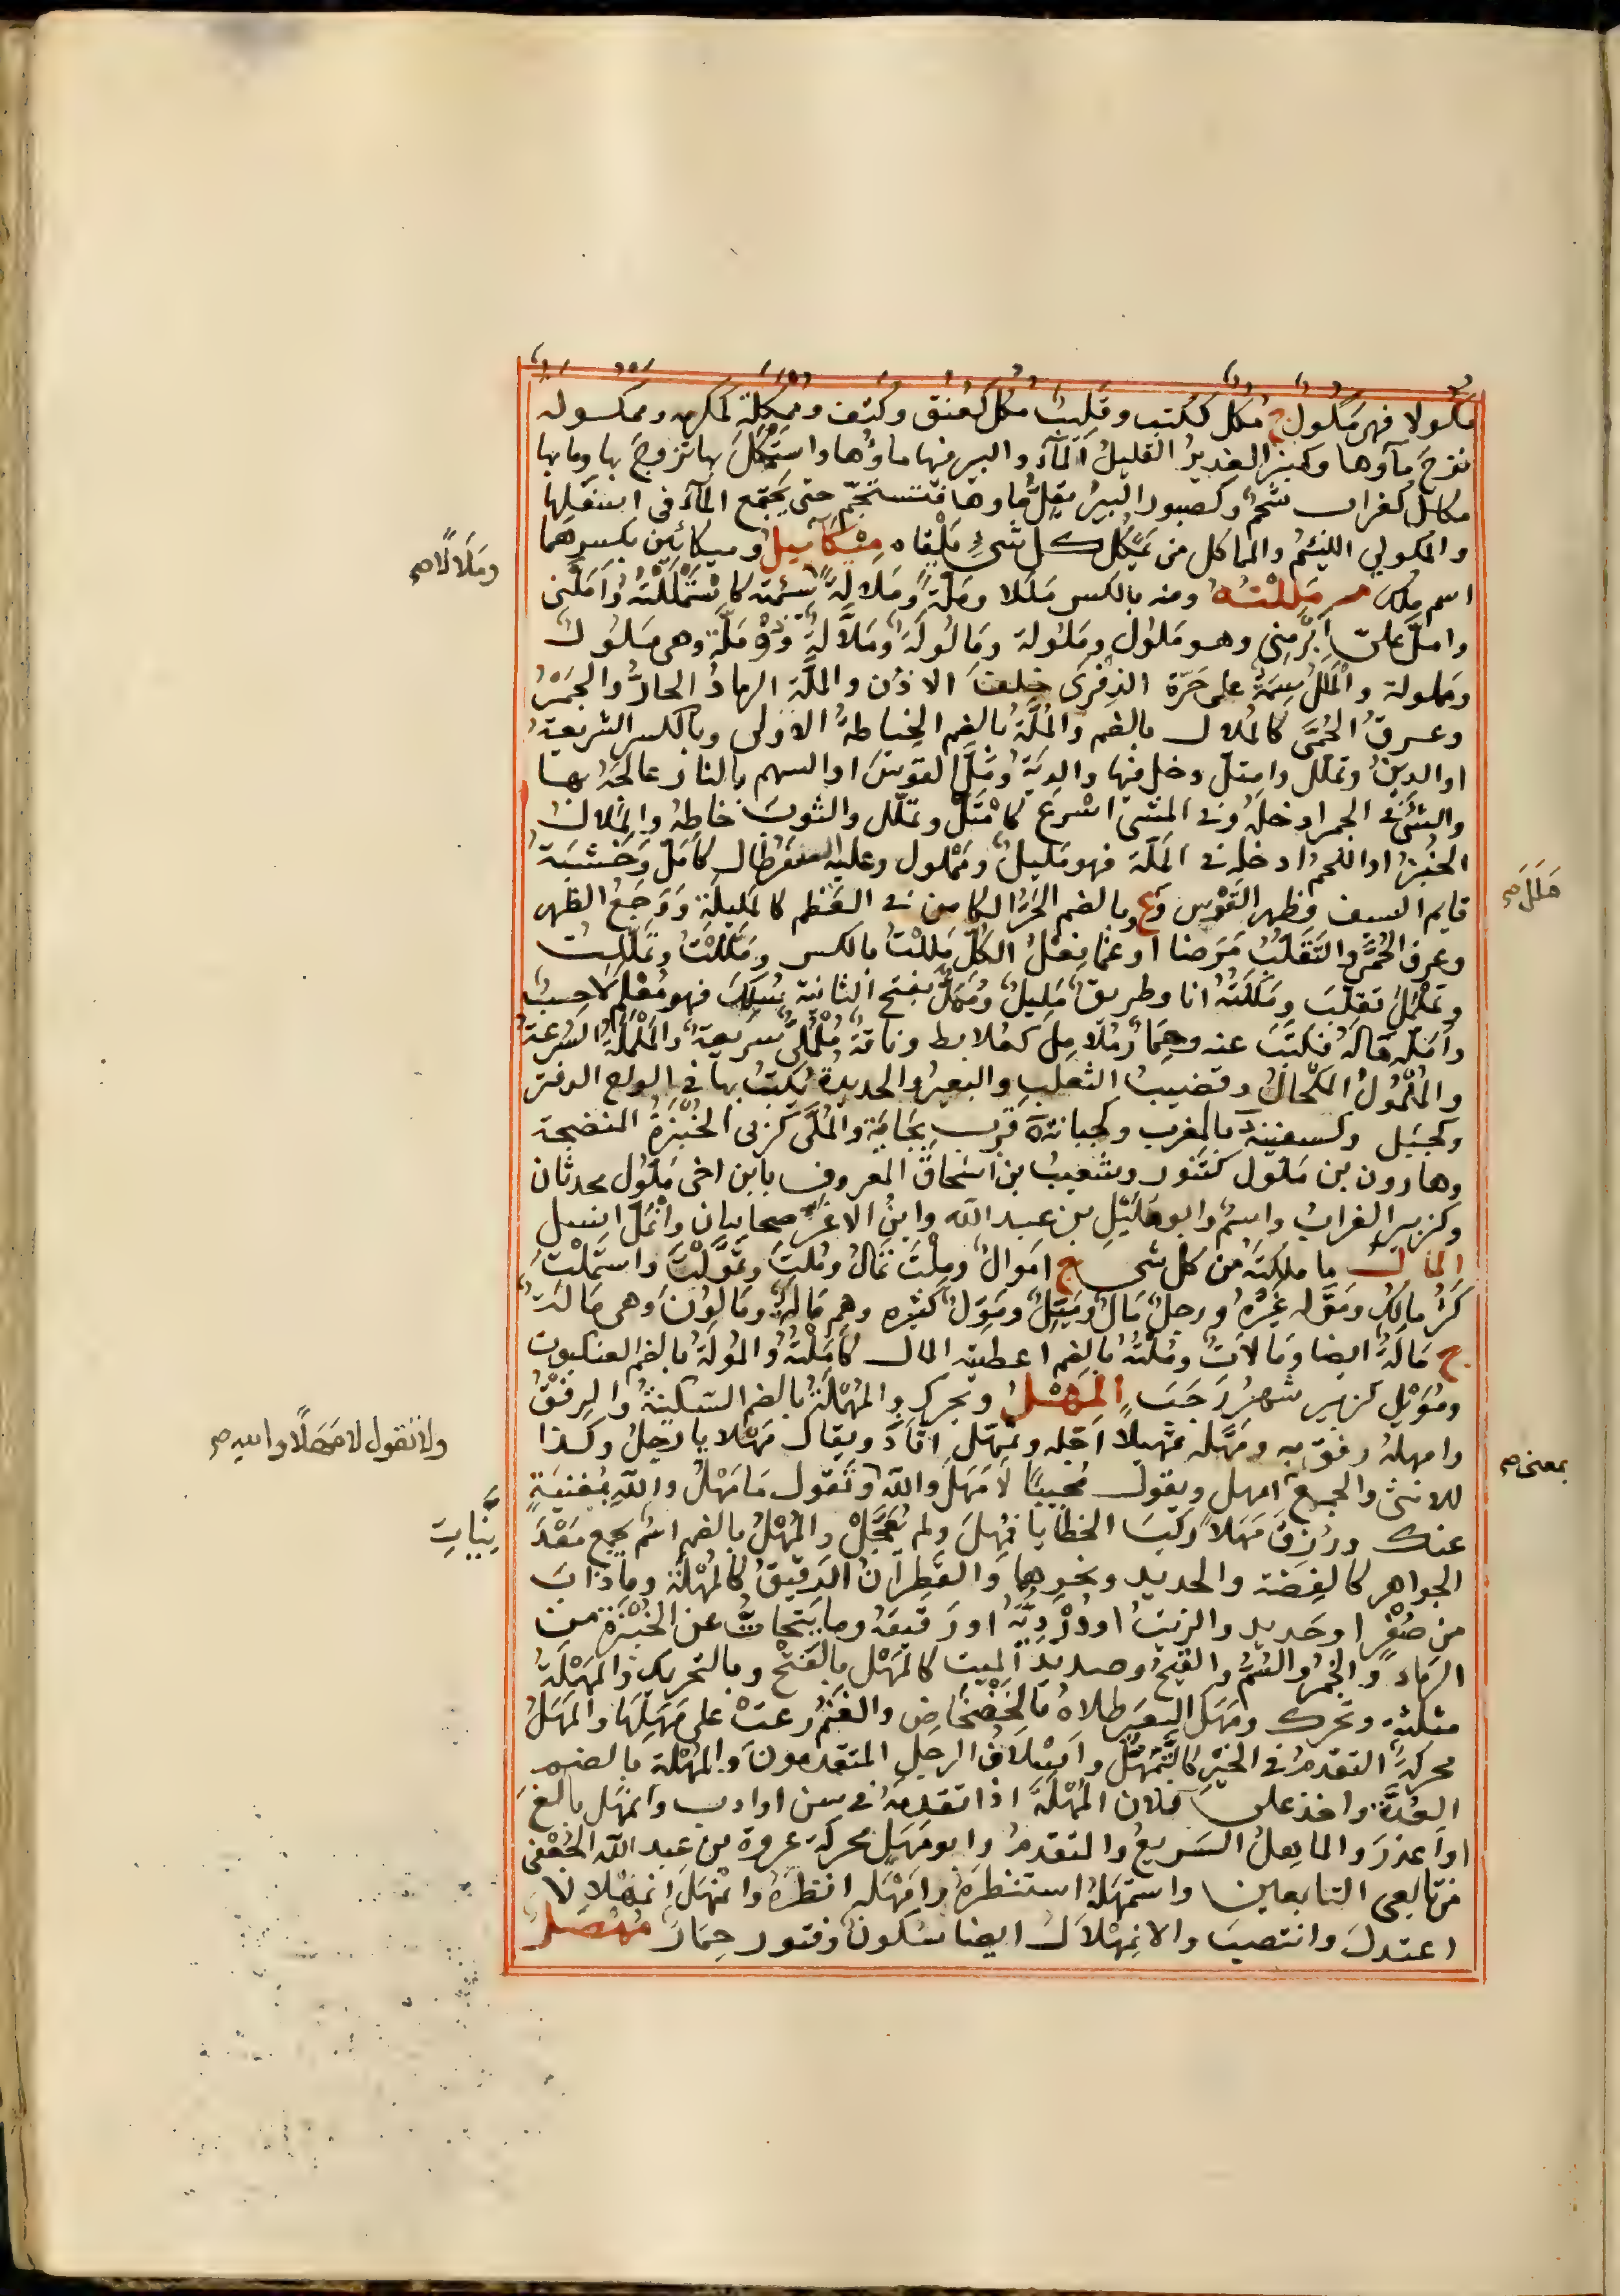 مكولا فهي مكول ج مكل ككتب وقليب مكل كعنق وكتف وممكلة كمكرمه وممكوله
نزح ماوها وكمنبر الغدير القليل الماء والبير فيها ماؤها واستمكل بها تزوج بها وما بها
مكال كغراب شحم وكصبور البير يقل ماوها فتستجم حتى يجتمع الماء في اسفلها
والمكولي اللئيم والمماكل من يمكل كل شي يلقاه ميكائيل وميكائين بكسرهما
وملالا صح
اسم ملك مللته ومنه بالكسر مللا وملة وملالة سئمته كاستمللته واملني
وامل علي ابرمني وهو ملول وملولة ومالولة وملالة وذو ملة وهي ملول
وملولة والملل سمة على حرة الذفرى خلف الاذن والملة الرماد الحار والجمر
وعرق الحمى كالملال بالضم والملة بالضم الخياطة الاولى وبالكسر الشريعة
او الدين وتملل وامتل دخل فيها والدية ومل القوس او السهم بالنار عالجه بها
والشئ في الجمر ادخله وفي المشي اسرع كامتل وتملل والثوب خاطه
الخبز او اللحم ادخله في الملة فهو مليل ومملول وعليه السفر طال كامل وخشبة
ملل صح
قايم السيف وظهر القوس وع وبالضم الحر الكامن في العظم كالمليلة ووجع الظهر
وعرق الحمى والتقلب مرضا او غما فعل الكل مللت بالكسر ومللت وتمللت
وتململ تقلب ومللته انا وطريق مليل وممل بفتح الثانية سلك فهو معلم لاحب
وامله قاله فكتب عنه وحمار ملامل كعلابط وناقة ململى سريعة والململة السرعة
والملمول المكحال وقضيب الثعلب والبعير والحديدة يكتب بها في الوح الدفتر
وكجبل وكسفينة بالمغرب وكجبانة قرب بجاية والملى كربى الخبزة المنضجة
وهارون بن ملول كتنور وشعيب بن اسحاق المعروف بابن اخي ملول محدثان
وكزبير الغراب واسم وابو مليل بن عبد الله وابن الاغر صحابيان وانمل انسل
المال ما ملكته من كل شي ج اموال وملت تمال وملت وتمولت واستملت
كثر مالك وموله غيره ورجل مال وميل ومول كثيره وهم مالة ومالون وهي مالة
ج مالة ايضا ومالات وملته بالضم اعطيته المال كاملته والمولة بالضم العنكبوت
ومويل كزبير شهر رجب المهل ويحرك والمهلة بالضم السكينة والرفق
وامهله رفق به ومهله تمهيلا اجله وتمهل اتاد ويقال مهلا يا رجل وكذا
بمعنى صح
ولا تقول لا مهلا والله صح
للانثى والجمع امهل ويقول مجيبا لا مهل والله وتقول ما مهل والله بمغنية
عنك ورزق مهلا ركب الخطايا فمهل ولم يعجل والمهل بالضم اسم يجمع معد
نيات
الجواهر كالفضة والحديد ونحوها والقطران الرقيق كالمهلة وما ذاب
من صفر او حديد والزيت او درديه او رقيقه وما يتحات عن الخبزة من
الرماد والجمر والسم والقيح وصديد الميت كالمهل بالفتح وبالتحريك والمهلة
مثلثة وتحرك ومهل البعير طلاه بالخضخاض والغنم رعت على مهلها والمهل
محركة التقدم في الخير كالتمهل واسلاف الرجل المتقدمون والمهلة بالضم
العدة واخذ على فلان المهلة اذا تقدمه في سن او ادب وامهل بالغ
او اعذر والماهل السريع والمتقدم وابو مهل محركة عروة بن عبد الله الجعفي
من تابعي التابعين واستمهله استنظره وامهله انظره واتمهل اتمهلالا
اعتدل وانتصب والاتمهلال ايضا سكون وفتور حمار مهصل